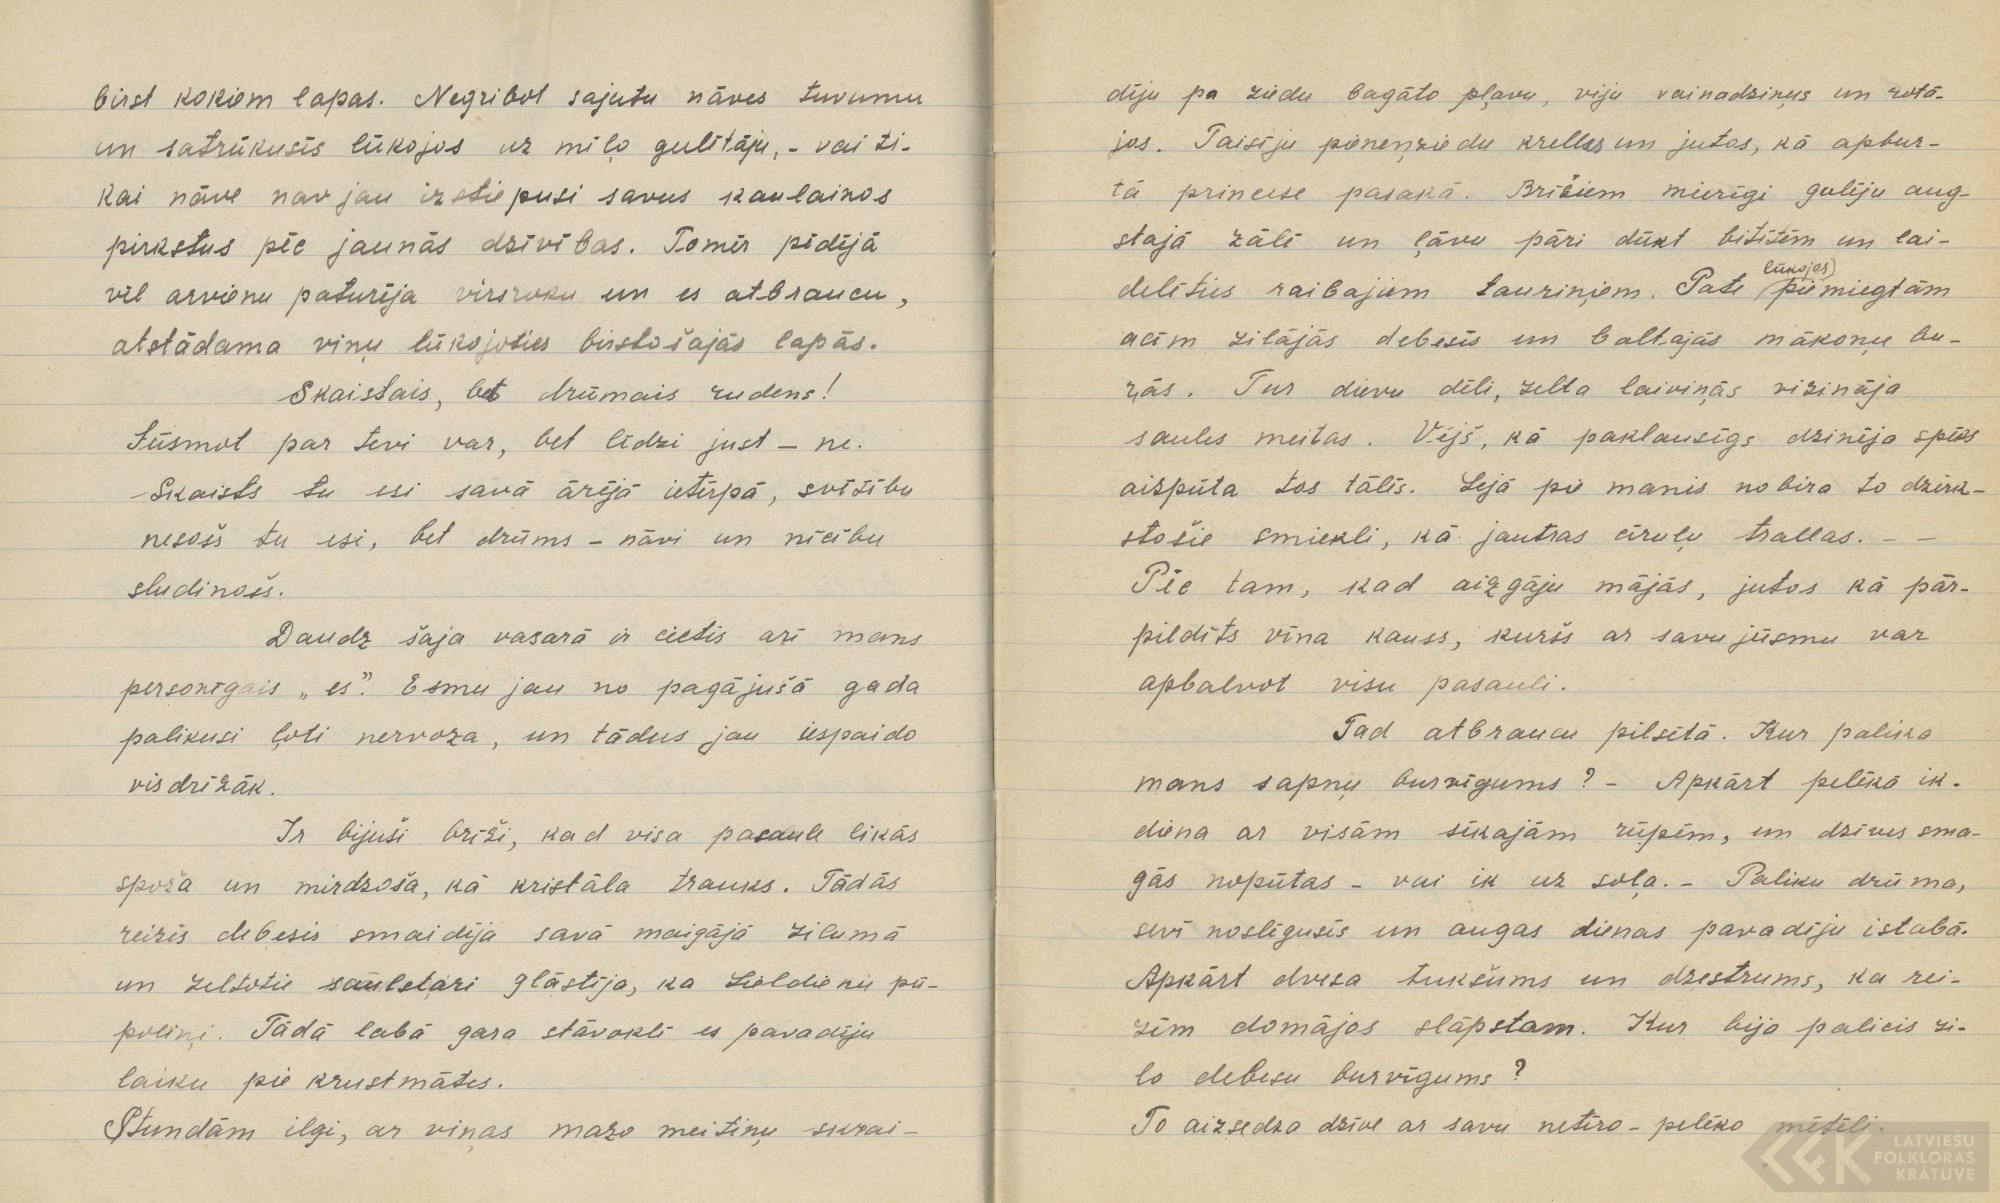 birst kokiem lapas. Negribot sajutu nāves tuvumu
un satrūkusīs lūkojos uz mīļo gulētāju, - vai ti-
kai nāve nav jau izstiepusi savus kaulainos
pirkstus pēc jaunās dzīvības. Tomēr pēdējā
vēl arvienu paturēja virsroku un es atbraucu,
atstādama viņu lūkojoties birstošajās lapās.
Skaistais, bet drūmais rudens!
Jūsmot par tevi var, bet līdzi just - ne.
Skaists tu esi savā ārējā ietērpā, svētību
nesošs tu esi, bet drūms - nāvi un nīcību
sludinošs.
Daudz šaja vasarā ir cietis arī mans
personīgais „es”. Esmu jau no pagājušā gada
palikusi ļoti nervoza, un tādus jau iespaido
visdrīzāk.
Ir bijuši brīži, kad visa pasaule likās
spoža un mirdzoša, kā kristāla trauks. Tādās
reizēs debesis smaidīja savā maigājā zilumā
un zeltotie saulstari glāstīja, ka Lieldienu pū-
poliņi. Tādā labā gara stāvoklī es pavadīju
laiku pie krustmātes.
Stundām ilgi, ar viņas mazo meitiņu skrai-
dīju pa ziedu bagāto pļavu, viju vainadziņus un rotā-
jos. Taisīju pieneņziedu krelles un jutos, kā apbur-
tā princese pasakā. Brīžiem mierīgi gulēju aug-
stajā zālē un ļāvu pāri dūkt bitītēm un lai-
delēties raibajiem tauriņiem. Pate lūkojos piemiegtām
acīm zilājās debesīs un baltajās mākoņu bu-
rās. Tur dievu dēli, zelta laiviņās vizināja
saules meitas. Vējš, kā paklausīgs dzinēja spēks
aizpūta tos tālēs. Lejā pie manis nobira to dzirk-
stošie smiekli, kā jautras cīruļu trallas. - -
Pēc tam, kad aizgāju mājās, jutos kā pār-
pildīts vīna kauss, kuršs ar savu jūsmu var
apbalvot visu pasauli.
Tad atbraucu pilsētā. Kur palika
mans sapņu burvīgums? - Apkārt pelēkā ik-
diena ar visām sīkajām rūpēm, un dzīves sma-
gās nopūtas - vai ik uz soļa. - Paliku drūma,
sevī noslēgusīs un augas dienas pavadīju istabā.
Apkārt dvesa tukšums un dzestrums, ka rei-
zēm domājos slāpstam. Kur bija palicis zi-
lo debesu burvīgums?
To aizsedza dzīve ar savu netīro - pelēko mētēli.
LATVIEŠU
FOLKLORAS
KRĀTUVE